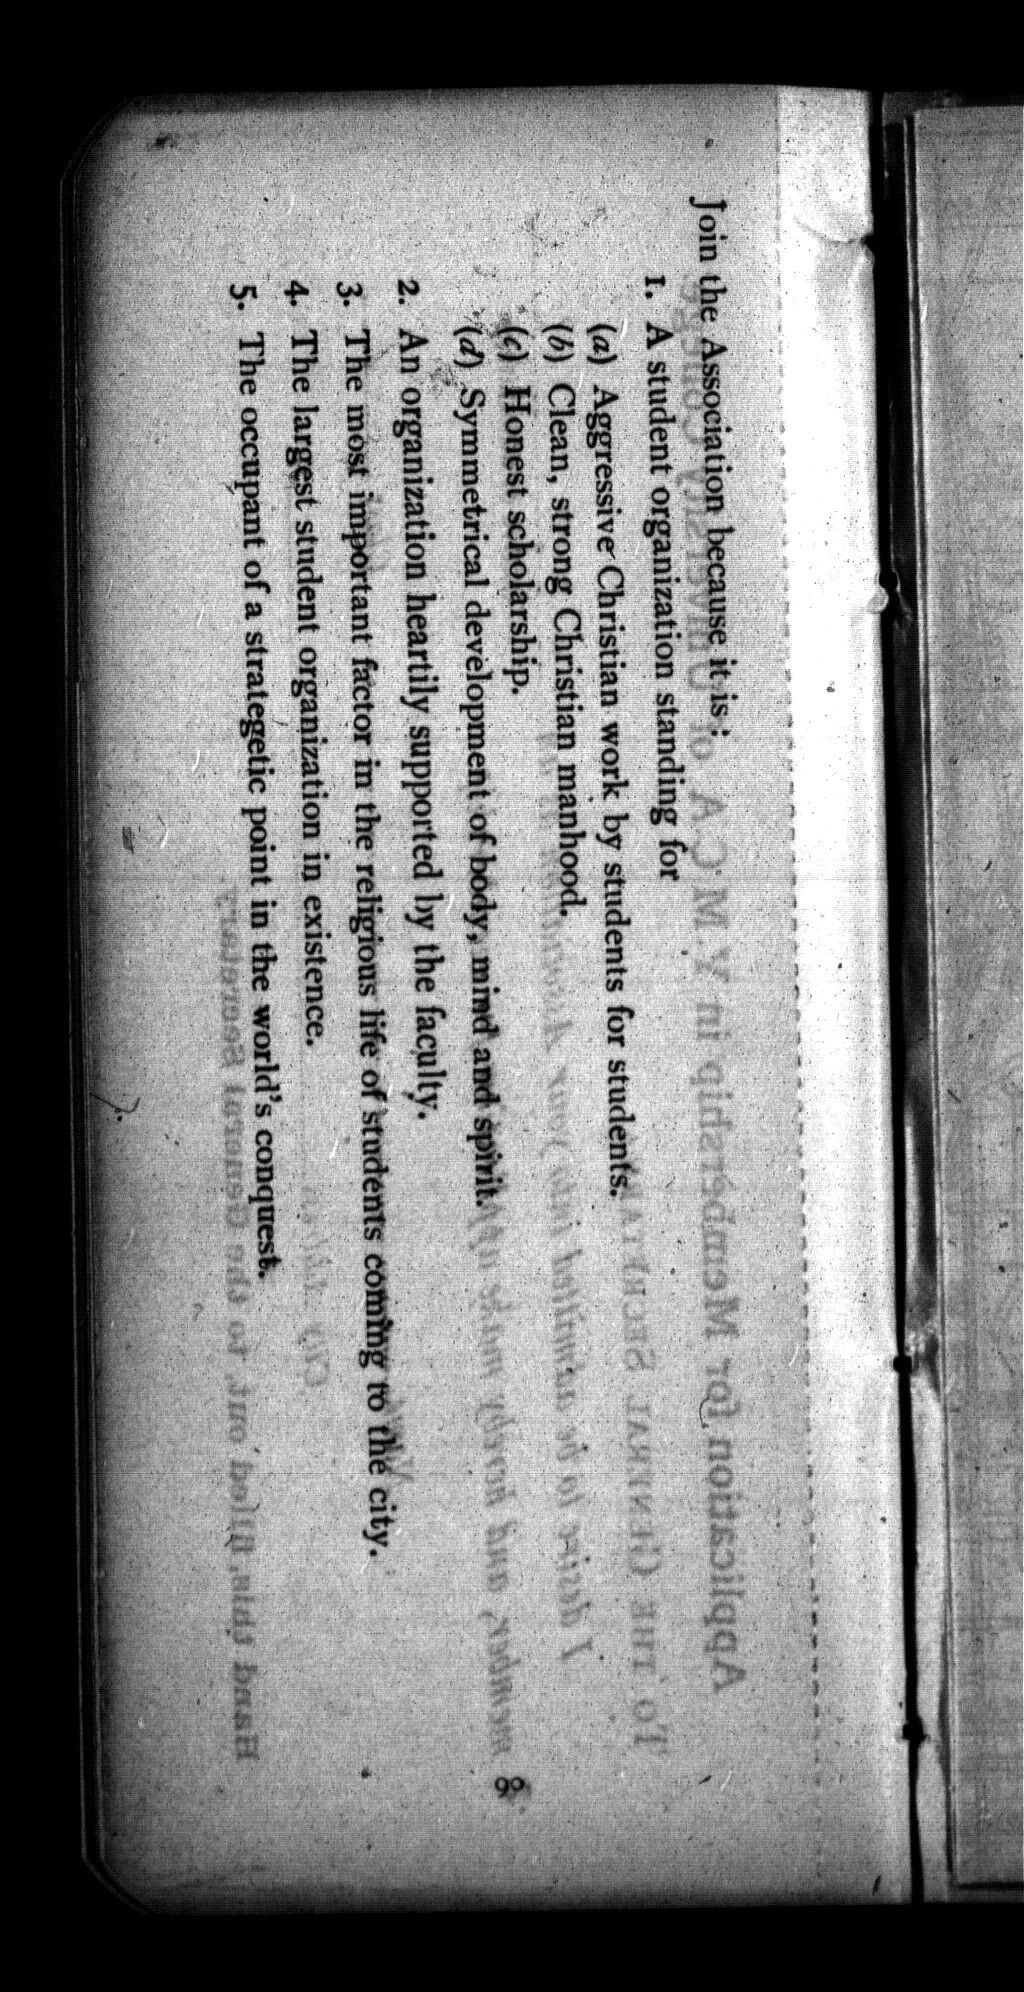 Join the Association because it is:
1. A student organization standing for
(a) Aggressive Christian work by students for students.
(b) Clean, strong Christian manhood.
(c) Honest scholarship.
(d) Symmetrical development of body, mind and spirit.
2. An organization heartily supported by the faculty.
3. The most important factor in the religious life of students coming to the city.
4. The largest student organization in existence.
5. The occupant of a strategetic point in the world's conquest.
8